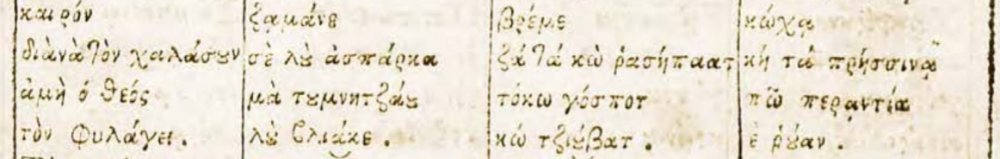 καιρόν ζαμάνε βρέμε κώχα
διὰ νὰ τὸν χαλάσουν σὲ λὺ ἀσπάρκα ζά τά κὼ ρασήπαατ κὴ τὰ πρήσσινα̈
ἀμὴ ὁ θεός μὰ τυμνητζάυ τόκω γόσποτ πῶ περαντία
τὸν φυλάγει. λὺ βλιάκε. κώ τζιύβατ. ἐ ῥύαν.